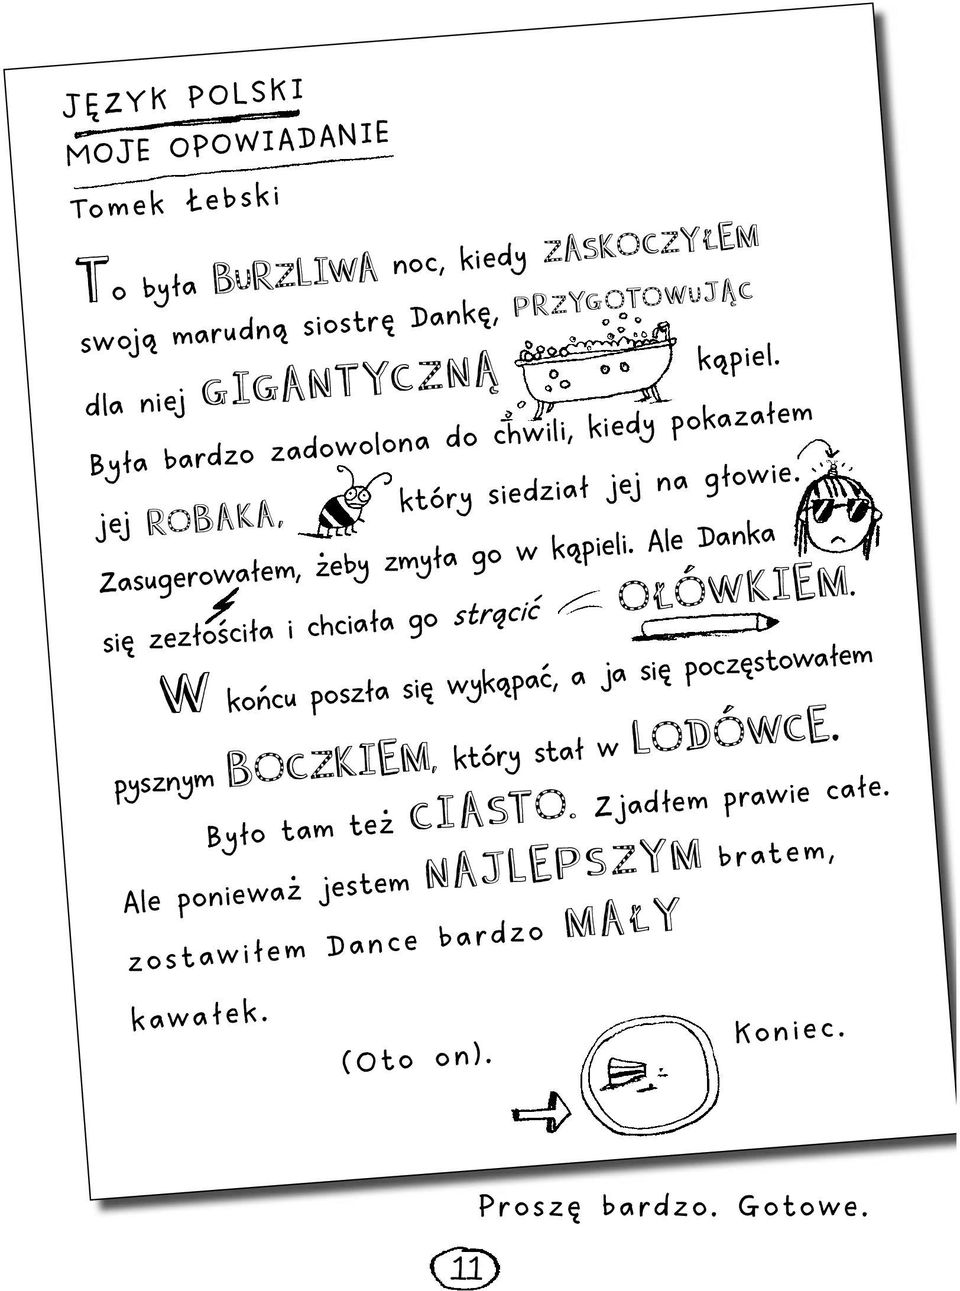 JĘZYK POLSKI
MOJE OPOWIADANIE
Tomek Łebski
To była BURZLIWA noc, kiedy ZASKOCZYŁEM
swoją marudną siostrę Dankę, PRZYGOTOWUJĄC
dla niej GIGANTYCZNĄ kąpiel.
Była bardzo zadowolona do chwili, kiedy pokazałem
jej ROBAKA, który siedział jej na głowie.
Zasugerowałem, żeby zmyła go w kąpieli. Ale Danka
się zezłościła i chciała go strącić OŁÓWKIEM.
W końcu poszła się wykąpać, a ja się poczęstowałem
pysznym BOCZKIEM, który stał w LODÓWCE.
Było tam też CIASTO. Zjadłem prawie całe.
Ale ponieważ jestem NAJLEPSZYM bratem,
zostawiłem Dance bardzo MAŁY
kawałek.
(Oto on). Koniec.
Proszę bardzo. Gotowe.
11